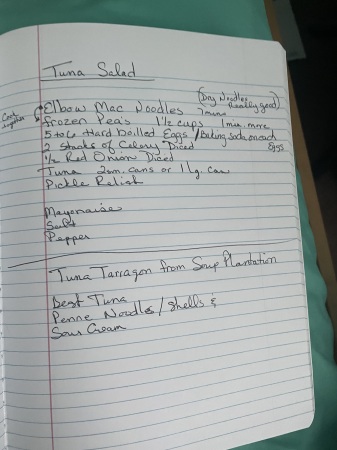 Tuna Salad
Cook together
Elbow Mac Noodles (Dry Noodles Really good)
frozen Pea's 1½ cups 7 mins 1 min. more
5 to 6 Hard boilled Eggs / Baking soda on each
2 Stanks of Celery Diced Eggs
½ Red Onion Diced
Tuna 2 sm. cans or 1 lg. can
Pickle Relish
Mayonaise
Salt
Pepper
Tuna Tarragon from Soup Plantation
Best Tuna
Penne Noodles / Shells &
Sour Cream